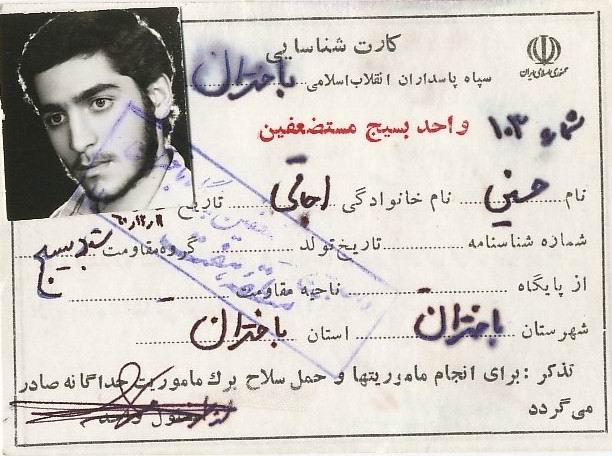 کارت شناسایی
جمهوری اسلامی ایران
سپاه پاسداران انقلاب اسلامی باختران
شماره ۱۰۳ واحد بسیج مستضعفین
نام حسین نام خانوادگی تاریخ ۶۰/۱۲/۱۱
شماره شناسنامه تاریخ تولد گروه مقاومت ستاد بسیج
از پایگاه – ناحیه مقاومت –
شهرستان باختران استان باختران
تذکر : برای انجام ماموریتها و حمل سلاح برك ماموریت جداگانه صادر
میگردد